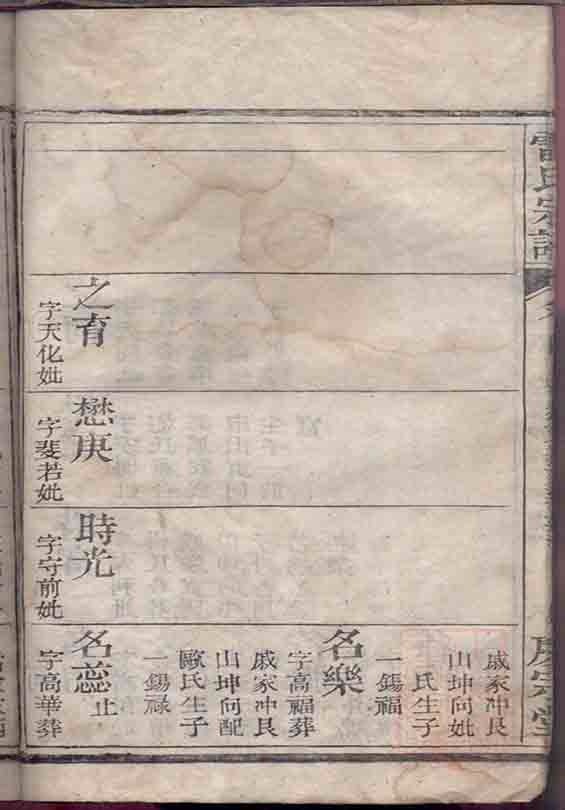 雷氏宗譜
之育
字天化妣
懋庚
字斐若妣
時光
字守前妣
戚家冲艮
山坤向妣
氏生子
一錫福
名樂
字高福葬
戚家冲艮
山坤向配
歐氏生子
一錫祿
名蕊止
字高華葬